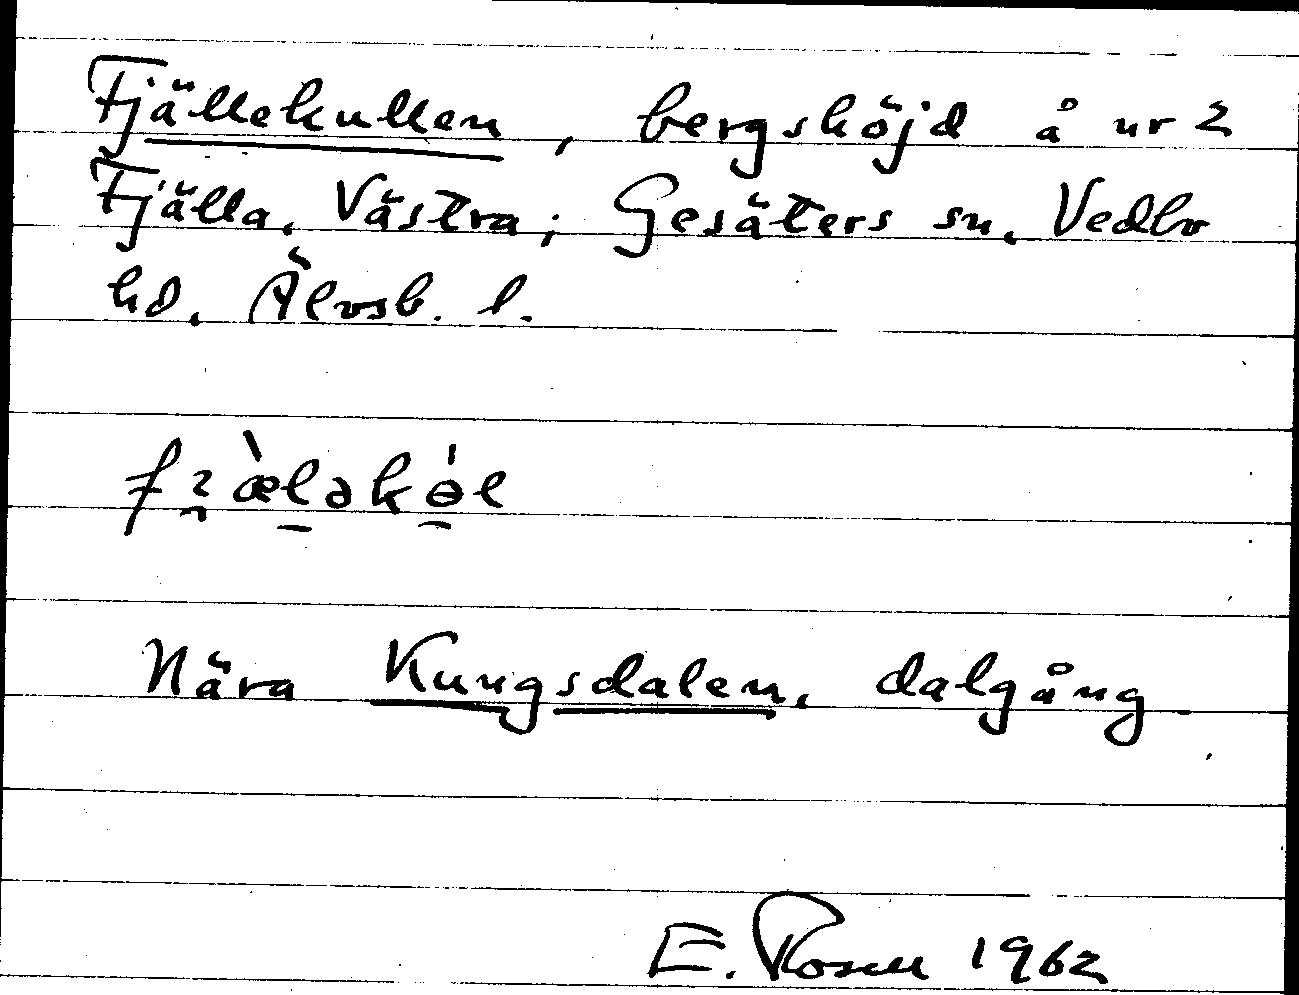 Fjällekullen, bergshöjd å nr 2
Fjälla, Västra; Gesäters sn, Vedbo
hd, Älvsb. l.
Nära Kungsdalen, dalgång
E. Rosell 1962